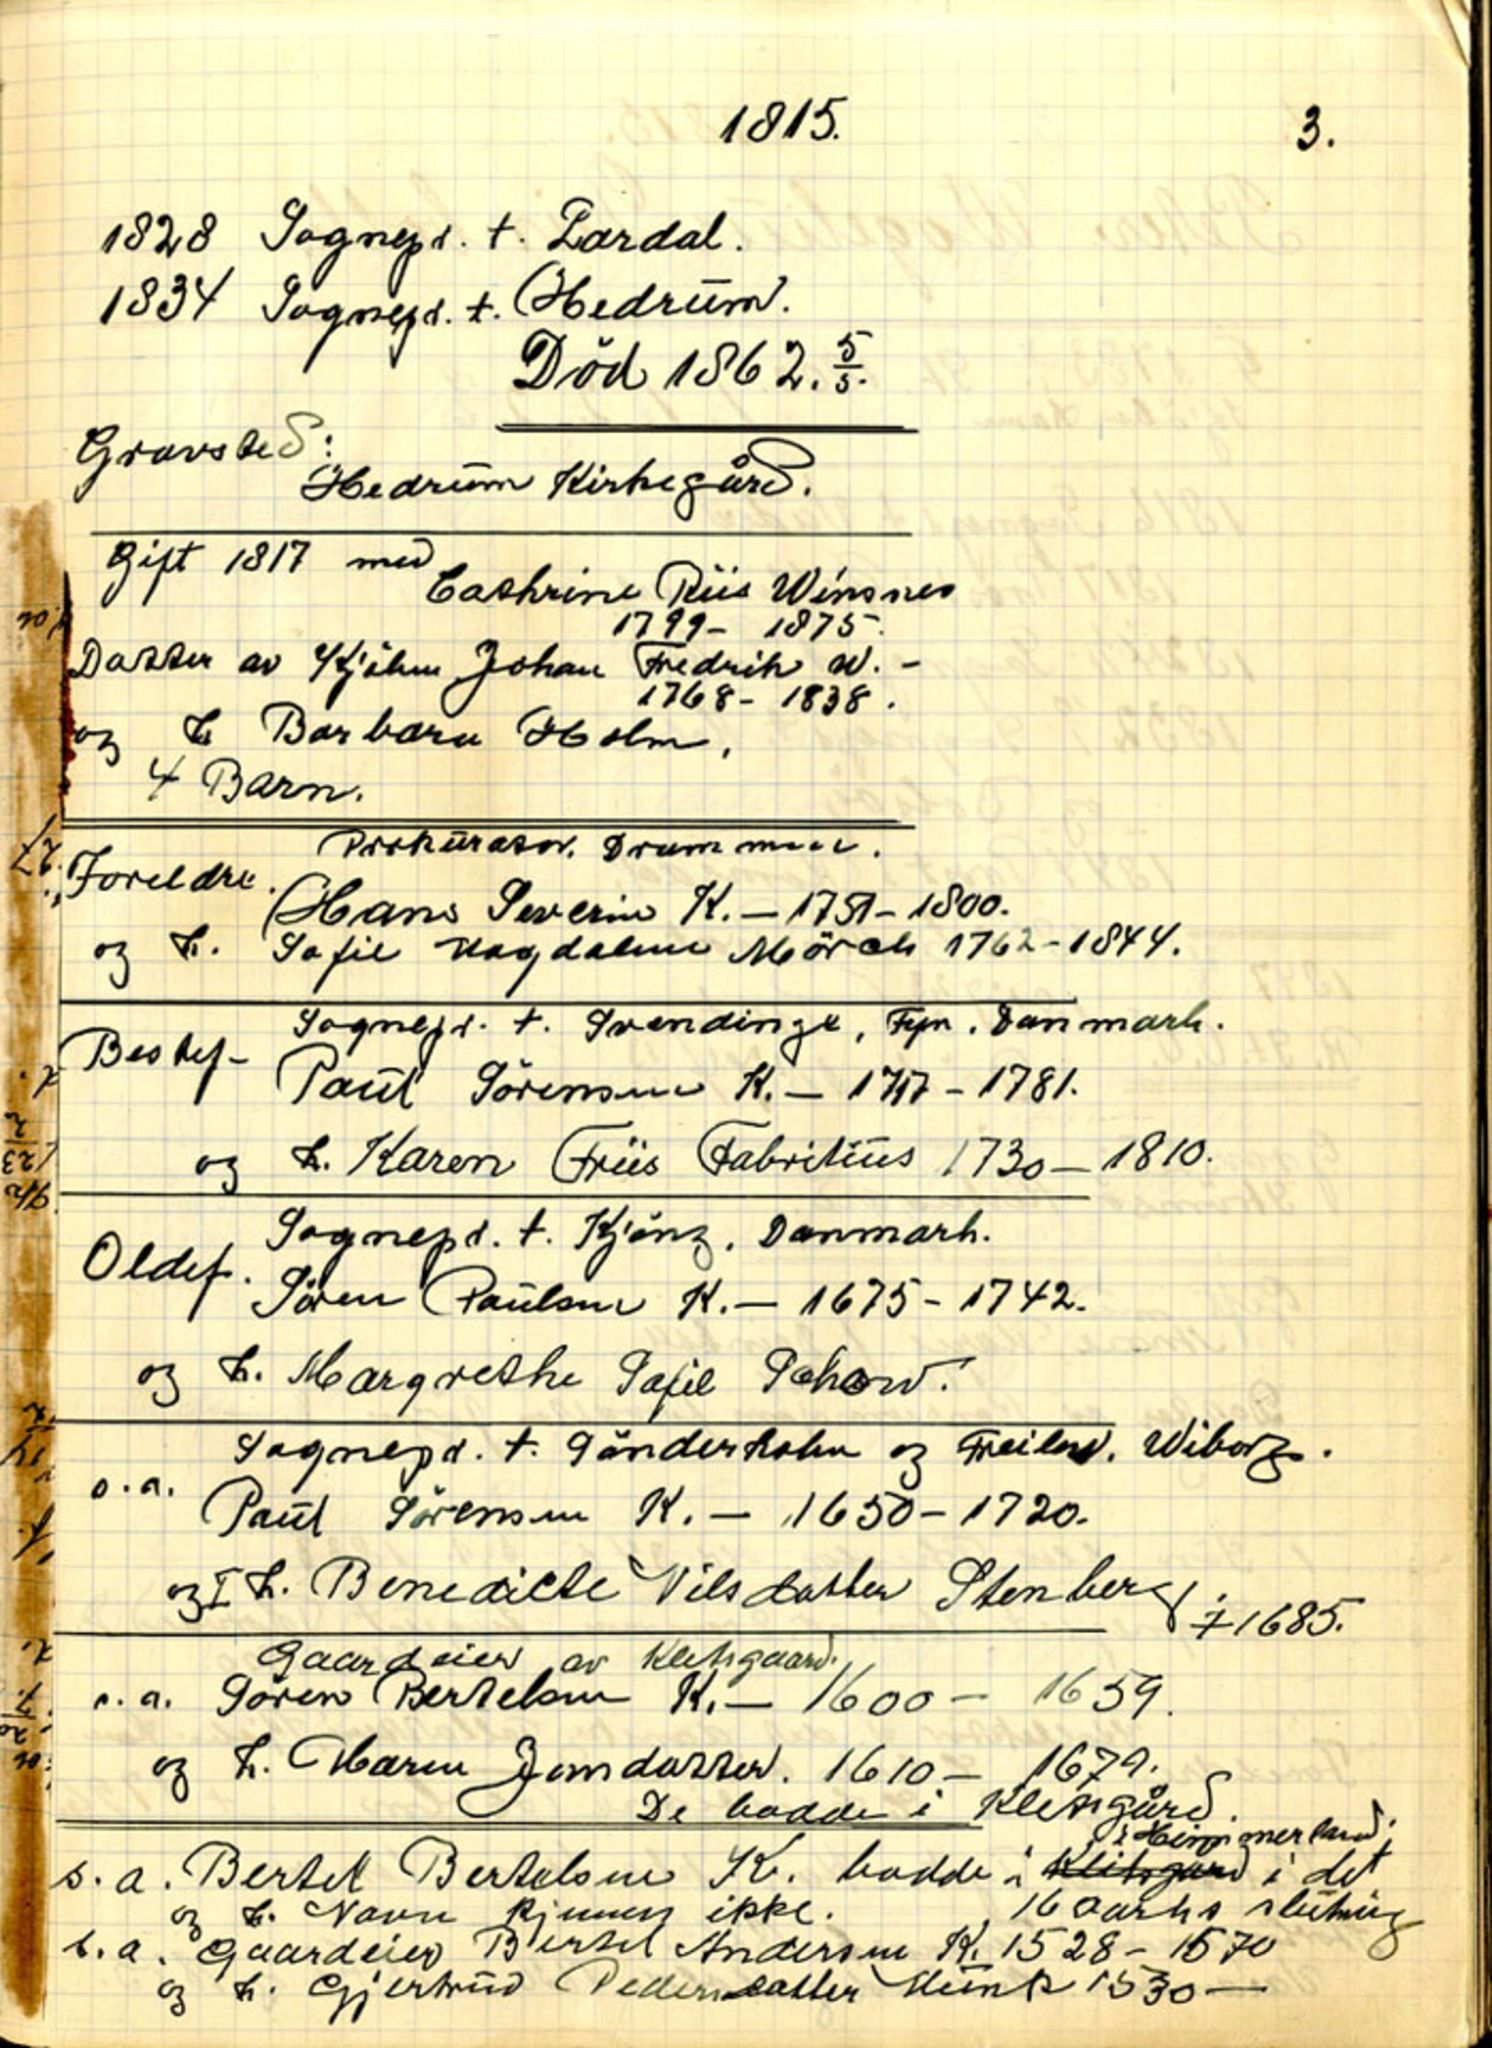 1815.
3.
1828 Sognepr. t. Lardal.
1834 Sognepr. t. Hedrum.
Död 1862. 5/5.
Gravsted:
Hedrum Kirkegård.
Gift 1817 med
Cathrine Riis Winsnes
1799 - 1875.
Datter av Kjöbm Johan Fredrik W. -
1768 - 1838.
og h Barbara Holm.
4 Barn.
Prokurator. Drammen.
Foreldre.
Hans Severin K. - 1751 - 1800.
og h. Sofie Magdalene Mörch 1762 - 1844.
Sognepr. t. Svendinge, Fyn. Danmark.
Bestef-
Paul Sörensen K. - 1717 - 1781.
og h. Karen Friis Fabritius 1730 - 1810.
Sognepr. t. Kjöng. Danmark.
Oldef.
Sören Paulsen K. - 1675 - 1742.
og h. Margrethe Sofie Schow.
Sognepr. t. Sönderholm og Freilev. Wiborg.
s. a.
Paul Sörensen K. - 1650 - 1720.
og I h. Benedicte Nilsdatter Stenberg † 1685.
Gaardeier av Klitgaard.
s. a. Sören Bertelsen K. - 1600 - 1659.
og h. Maren Jensdatter. 1610 - 1679.
De bodde i Klitgård.
i Himmerland.
s. a. Bertel Bertelsen K. bodde i Klitgaard i det
og h. Navn kjennes ikke. 16 aarhs slutning
s. a. Gaardeier Bertel Andersen K. 1528 - 1570
og h. Gjertrud Pedersdatter Munk 1530 -